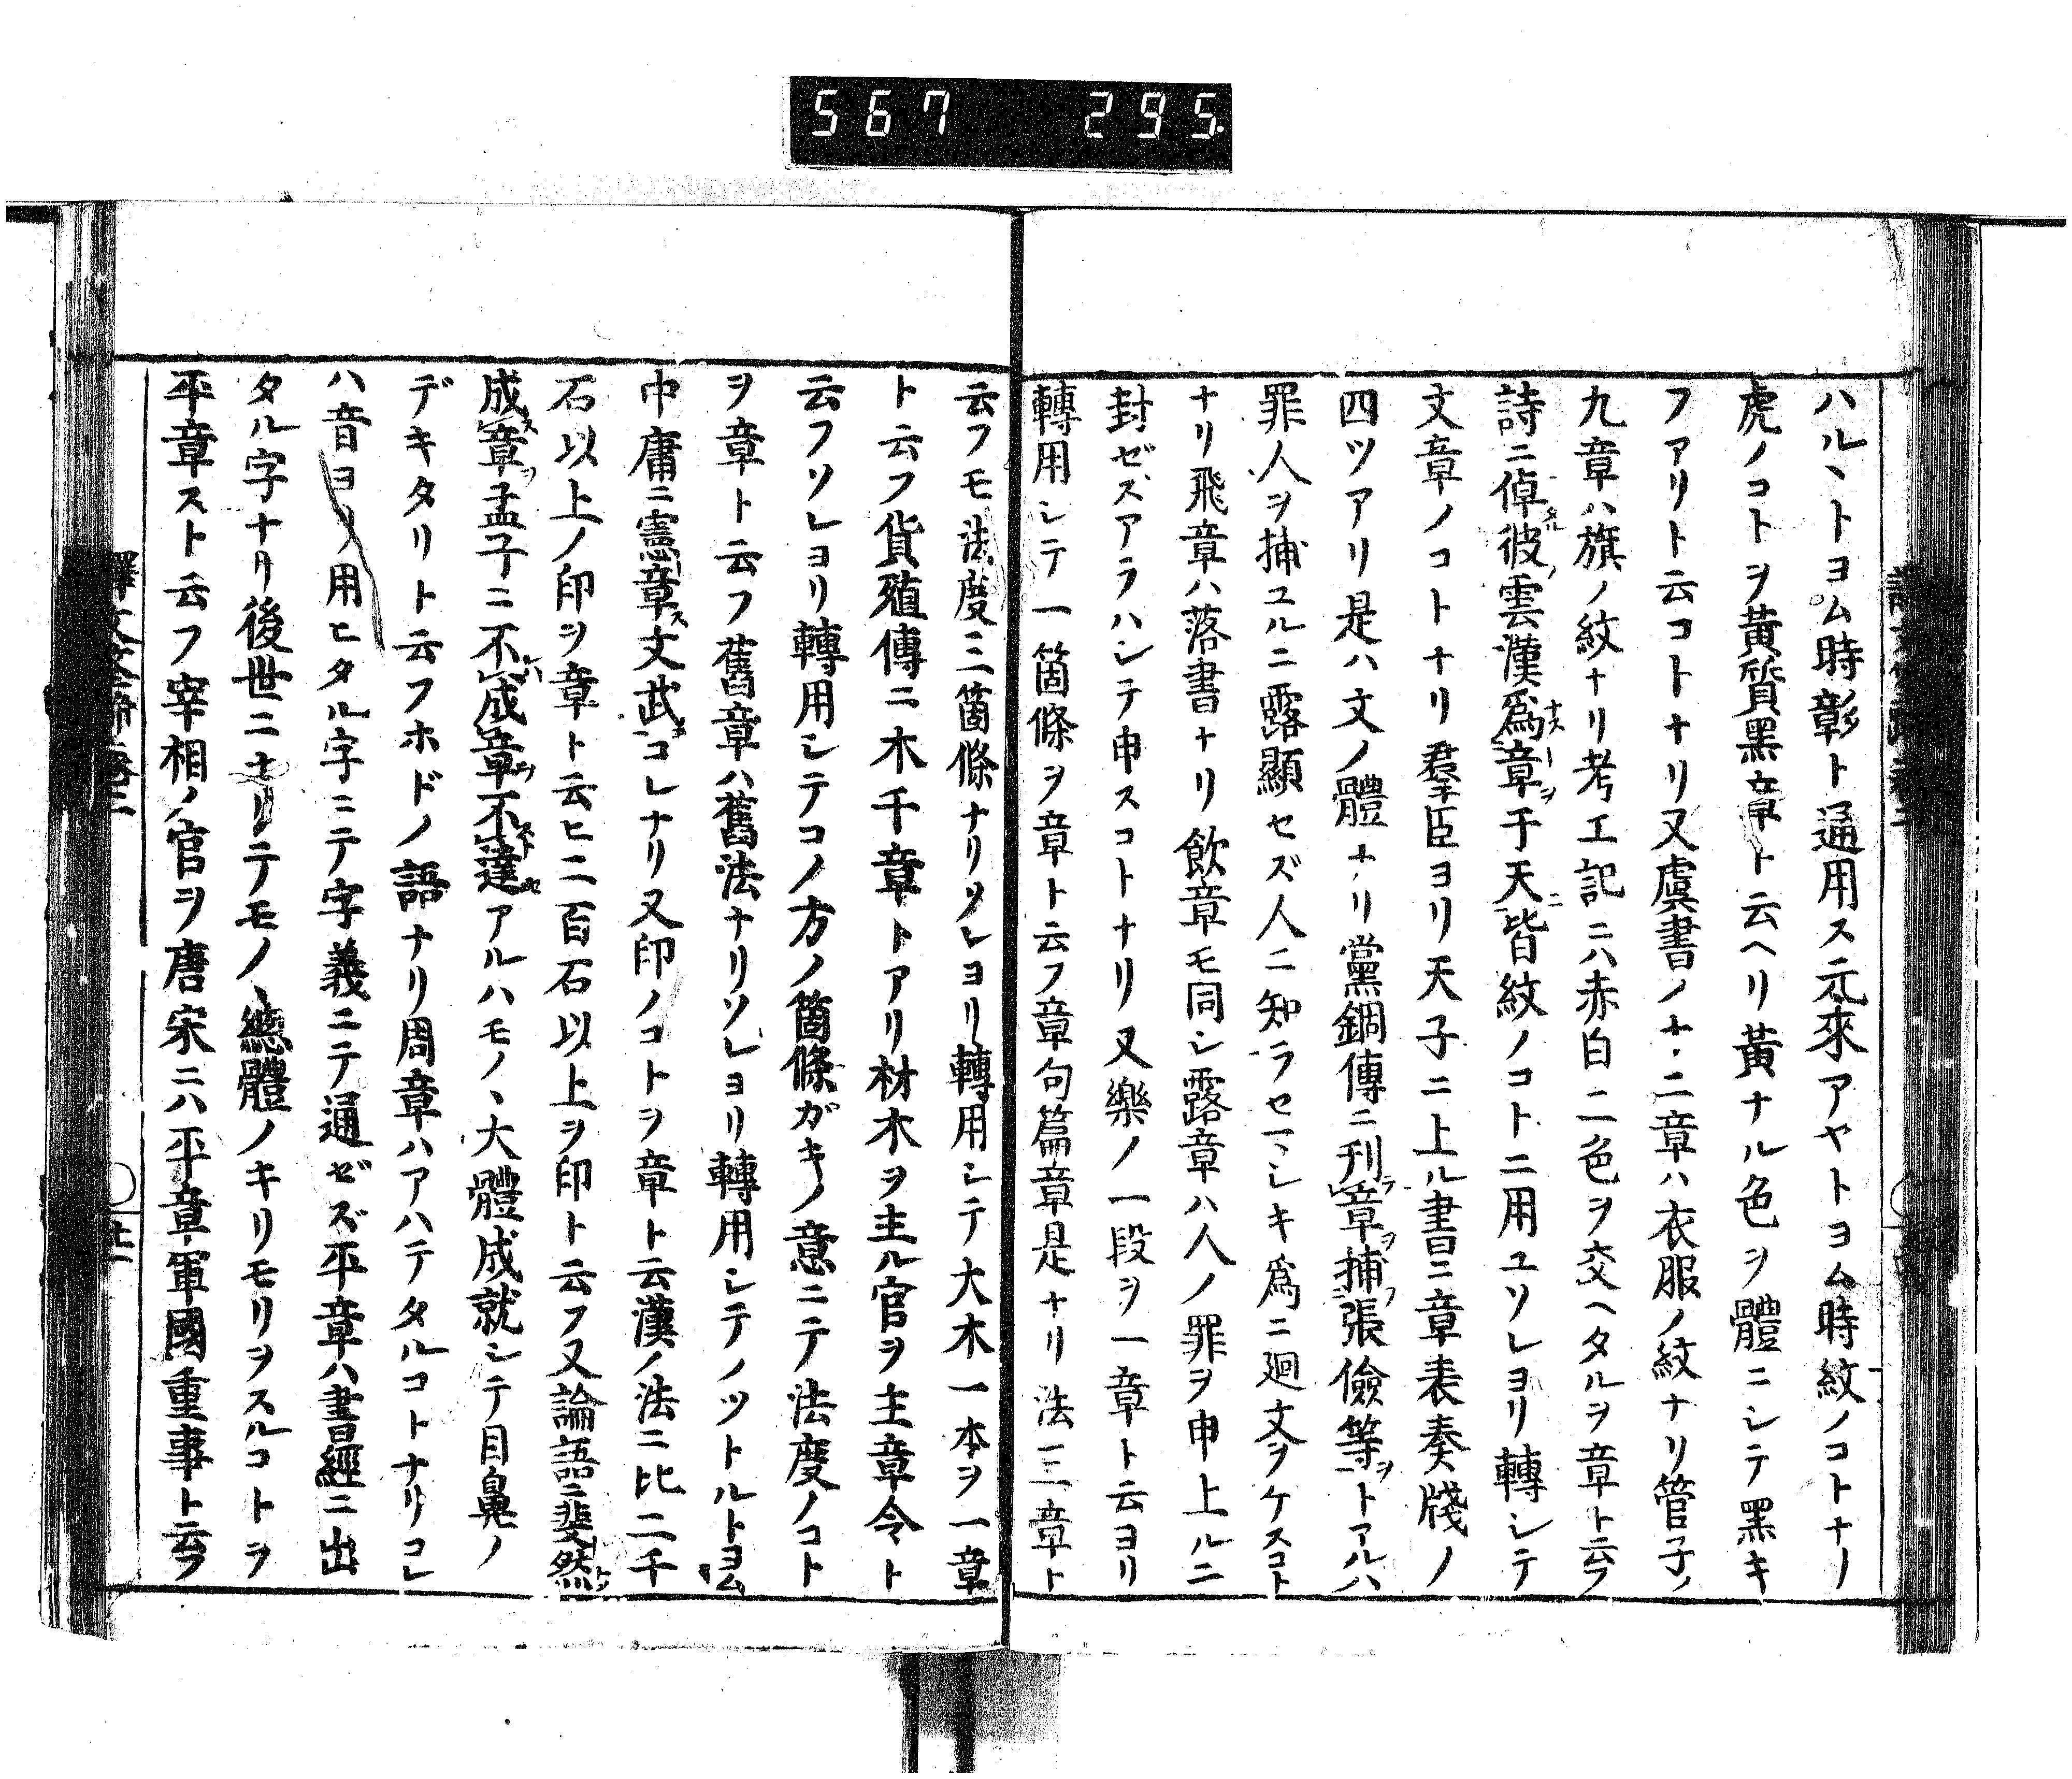 567 295
ハルヽトヨム時彰ト通用ス元來アヤトヨム時紋ノコトナノ
虎ノコトヲ黃質黑章ト云ヘリ黃ナル色ヲ體ニシテ黑キ
フアリト云コトナリ又虞書ノ十二章ハ衣服ノ紋ナリ管子ノ
九章ハ旗ノ紋ナリ考工記ニハ赤白二色ヲ交ヘタルヲ章ト云フ
詩ニ倬タル彼ノ雲漢爲ナスーヲ章于天ニ皆紋ノコトニ用ユソレヨリ轉シテ
文章ノコトナリ羣臣ヨリ天子ニ上ル書ニ章表奏牋ノ
四ツアリ是ハ文ノ體ナリ黨錮傳ニ刊ラ章ヲ捕フ張儉等ヲトアルハ
罪人ヲ捕ユルニ露顯セズ人ニ知ラセマシキ爲ニ廻文ヲケスコト
ナリ飛章ハ落書ナリ飮章モ同シ露章ハ人ノ罪ヲ申上ルニ
封ゼズアラハシテ申スコトナリ又樂ノ一段ヲ一章ト云ヨリ
轉用シテ一箇條ヲ章ト云フ章句篇章是ナリ法三章ト
云フモ法度三箇條ナリソレヨリ轉用シテ大木一本ヲ一章
ト云フ貨殖傳ニ木千章トアリ材木ヲ主ル官ヲ主章令ト
云フソレヨリ轉用シテコノ方ノ箇條ガキノ意ニテ法度ノコト
ヲ章ト云フ舊章ハ舊法ナリソレヨリ轉用シテノツトルトヨム
中庸ニ憲章ス文武ヲコレナリ又印ノコトヲ章ト云漢ノ法ニ比二千
石以上ノ印ヲ章ト云ヒ二百石以上ヲ印ト云フ又論語ニ斐然
成ス章ヲ孟子ニ不ハ成章ヲ不達セアルハモノヽ大體成就シテ目鼻ノ
デキタリト云フホドノ語ナリ周章ハアハテタルコトナリコレ
ハ音ヨリ用ヒタル字ニテ字義ニテ通ゼズ平章ハ書經ニ出
タル字ナリ後世ニナリテモノヽ總體ノキリモリヲスルコトヲ
平章スト云フ宰相ノ官ヲ唐宋ニハ平章軍國重事ト云フ